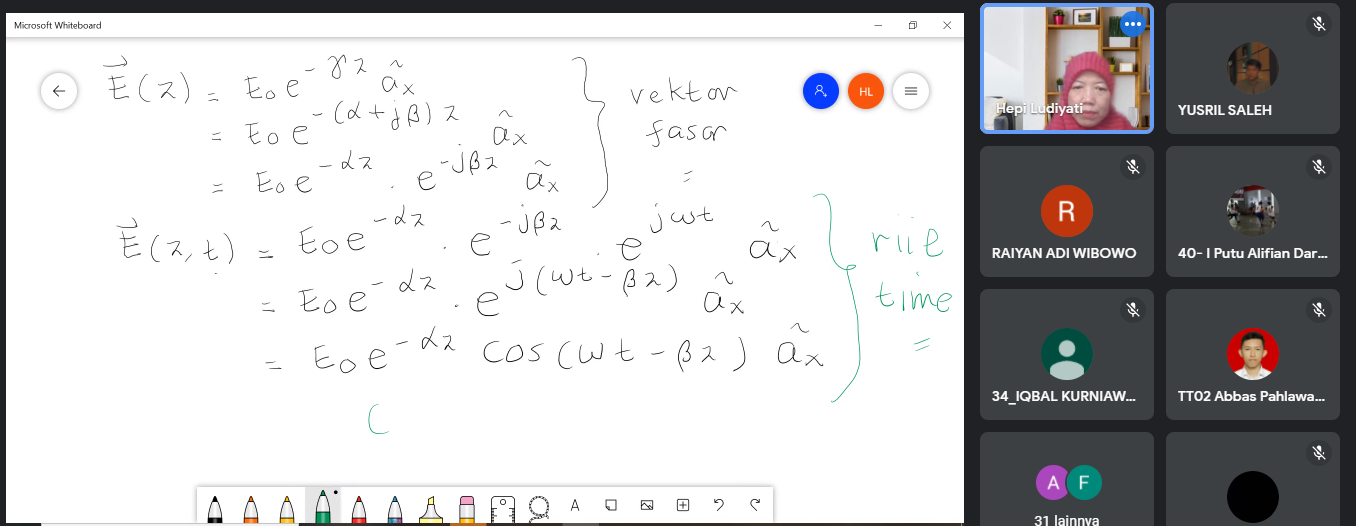 Microsoft Whiteboard
E⃗(z) = E₀e^(-γz) ã_x
= E₀e^(-(α+jβ)z) ã_x
= E₀e^(-αz) . e^(-jβz) ã_x
vektor
fasor
=
E⃗(z,t) = E₀e^(-αz) . e^(-jβz) . e^(jωt) ã_x
= E₀e^(-αz) . e^(j(ωt-βz)) ã_x
= E₀e^(-αz) cos(ωt-βz) ã_x
riil
time
=
HL
A
Hepi Ludiyati
YUSRIL SALEH
R
RAIYAN ADI WIBOWO
40- I Putu Alifian Dar...
34_IQBAL KURNIAW...
TT02 Abbas Pahlawa...
A F
31 lainnya